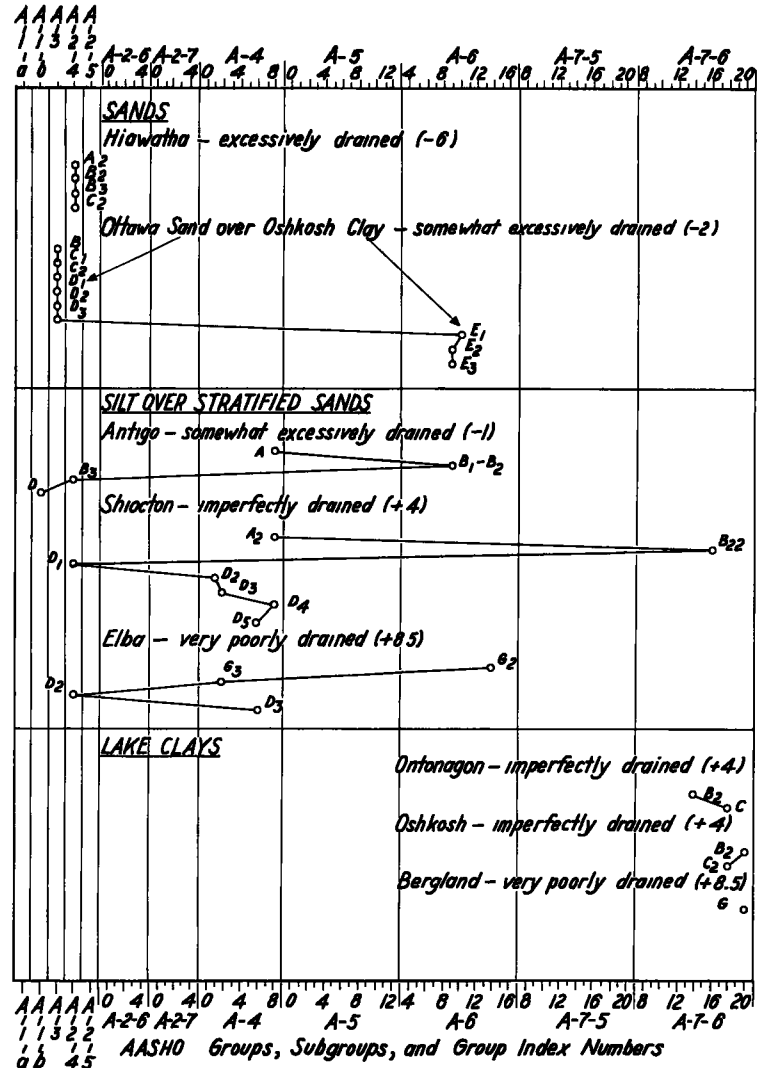 A-1-a A-1-b A-3 A-2-4 A-2-5 A-2-6 A-2-7 A-4 A-5 A-6 A-7-5 A-7-6
0 4 0 4 0 4 8 0 4 8 12 16 0 4 8 12 16 20 8 12 16 20
SANDS
Hiawatha – excessively drained (-6)
A2
B2
B3
C2
Ottawa Sand over Oshkosh Clay – somewhat excessively drained (-2)
B
C1
C2
D1
D2
D3
E1
E2
E3
SILT OVER STRATIFIED SANDS
Antigo – somewhat excessively drained (-1)
A
B1-B2
B3
D
Shiocton – imperfectly drained (+4)
A2
B22
D1
D2
D3
D4
D5
Elba – very poorly drained (+8.5)
G2
G3
D2
D3
LAKE CLAYS
Ontonagon – imperfectly drained (+4)
B2
C
Oshkosh – imperfectly drained (+4)
B2
C2
Bergland – very poorly drained (+8.5)
G
0 4 0 4 0 4 8 0 4 8 12 16 8 12 16 20 8 12 16 20
A-1-a A-1-b A-3 A-2-4 A-2-5 A-2-6 A-2-7 A-4 A-5 A-6 A-7-5 A-7-6
AASHO Groups, Subgroups, and Group Index Numbers